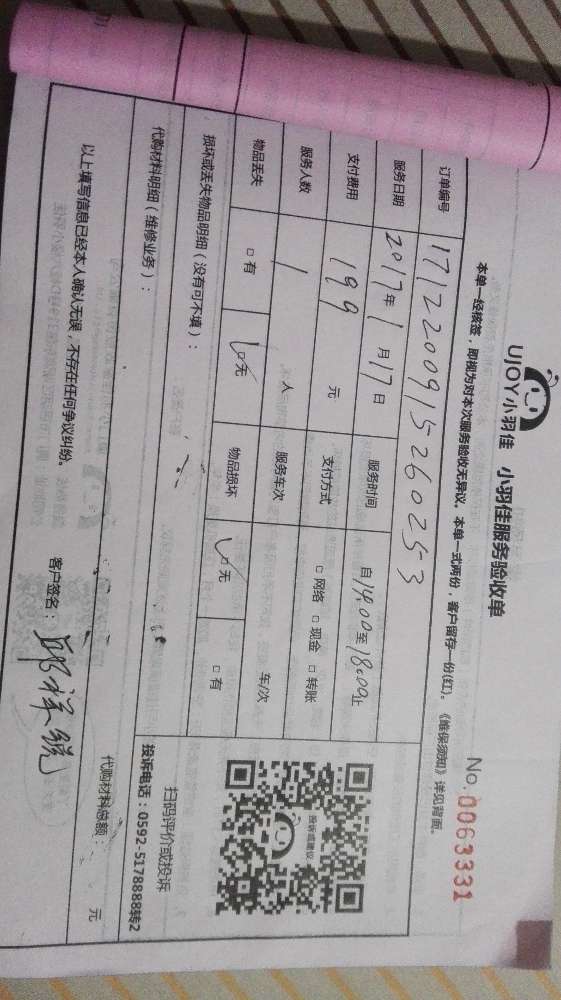 UJOY小羽佳 小羽佳服务验收单
No. 0063331
本单一经核签，即视为对本次服务验收无异议。本单一式两份，客户留存一份(红)。《维保须知》详见背面。
订单编号 1712200915260253
服务日期 2017年1月17日 服务时间 自14:00至18:00止
支付费用 199 元 支付方式 □网络 □现金 □转账
服务人数 1 人 服务车次 车/次
物品丢失 □有 □无 物品损坏 □无 □有
损坏或丢失物品明细（没有可不填）：
投诉或建议
扫码评价或投诉
投诉电话：0592-5178888转2
代购材料明细（维修业务）：
代购材料总额： 元
以上填写信息已经本人确认无误，不存在任何争议纠纷。 客户签名：